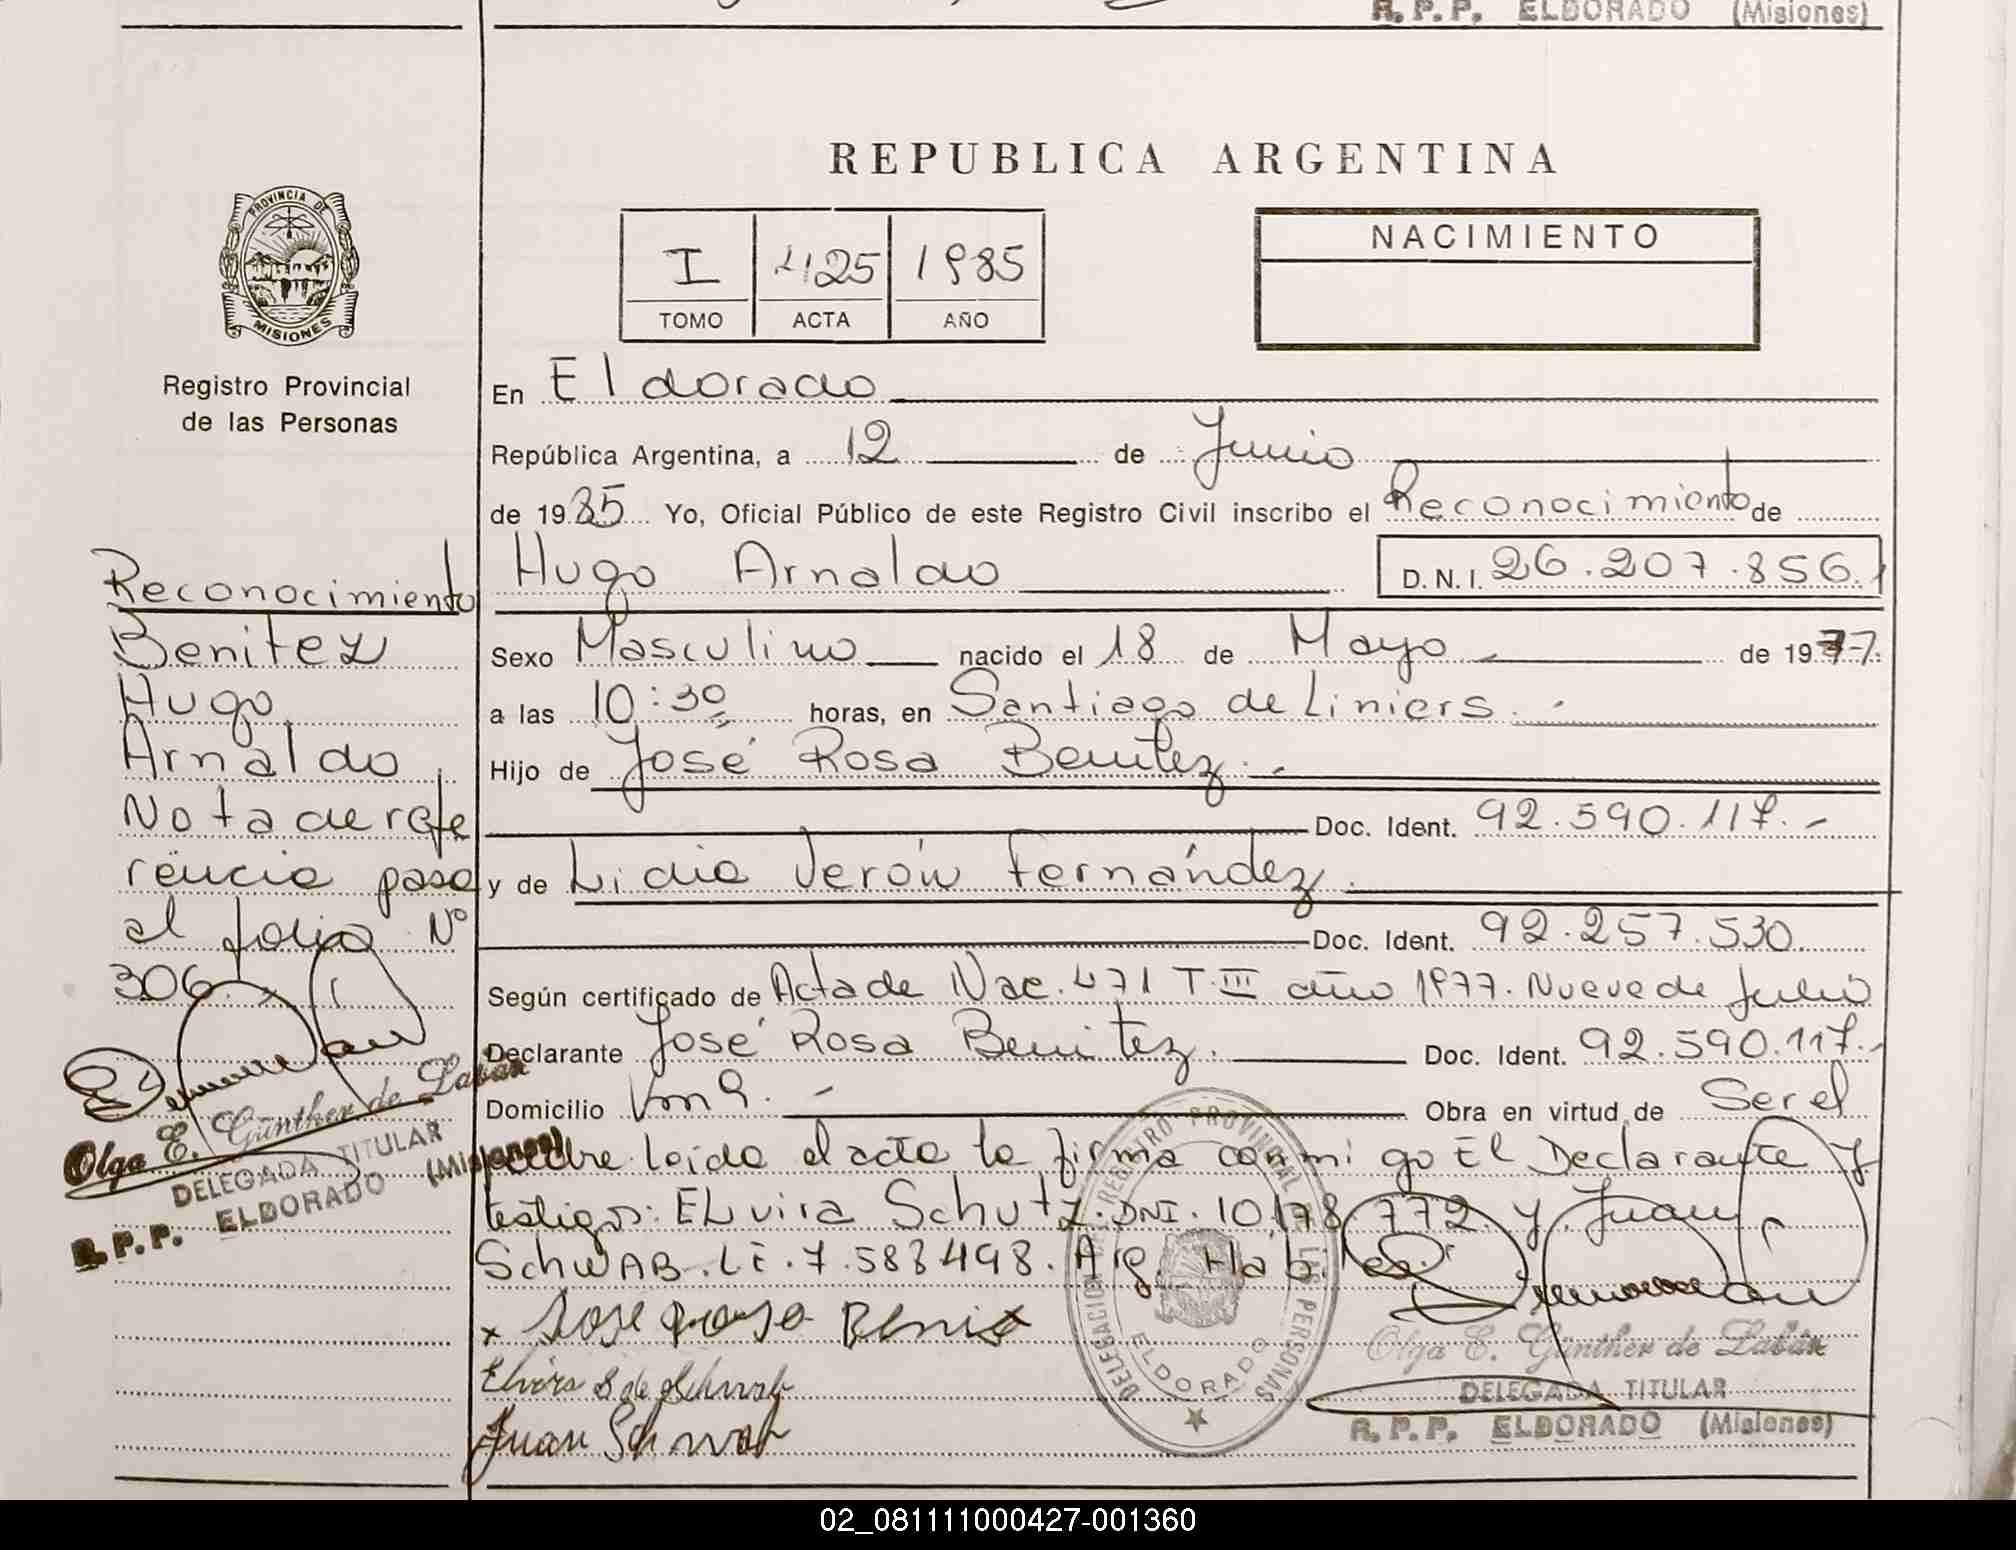 R. P. P. ELDORADO (Misiones)
REPUBLICA ARGENTINA
PROVINCIA DE
MISIONES
Registro Provincial
de las Personas
I 425 1985
TOMO ACTA AÑO
NACIMIENTO
En Eldorado
República Argentina, a 12 de Junio
de 1985 Yo, Oficial Público de este Registro Civil inscribo el Reconocimiento de
Hugo Arnaldo D.N.I. 26.207.856.
Sexo Masculino nacido el 18 de Mayo de 1977.
a las 10:30 horas, en Santiago de Liniers.
Hijo de José Rosa Benitez.
Doc. Ident. 92.590.117.-
y de Lidia Verón Fernández.
Doc. Ident. 92.257.530
Según certificado de Acta de Nac. 471 T. III año 1977. Nueve de Julio
Declarante José Rosa Benitez. Doc. Ident. 92.590.117.-
Domicilio Km 9. - Obra en virtud de Ser el
padre leida el acta la firma conmigo El Declarante y
testigos: ELvira Schutz. DNI. 10.178.772. y Juan
SchWAB. LE. 7.583498. Arg. Habiles.
x Jose Rosa Benit
Elvira S de Schwab
Juan Schwab
DELEGACION REGISTRO PROVINCIAL DE LAS PERSONAS
ELDORADO
Olga E. Günther de Labán
DELEGADA TITULAR
R. P. P. ELDORADO (Misiones)
Reconocimiento
Benitez
Hugo
Arnaldo
Nota de refe
rencia pasa
al folio Nº
306.
Olga E. Günther de Labán
DELEGADA TITULAR
R. P. P. ELDORADO (Misiones)
02_081111000427-001360